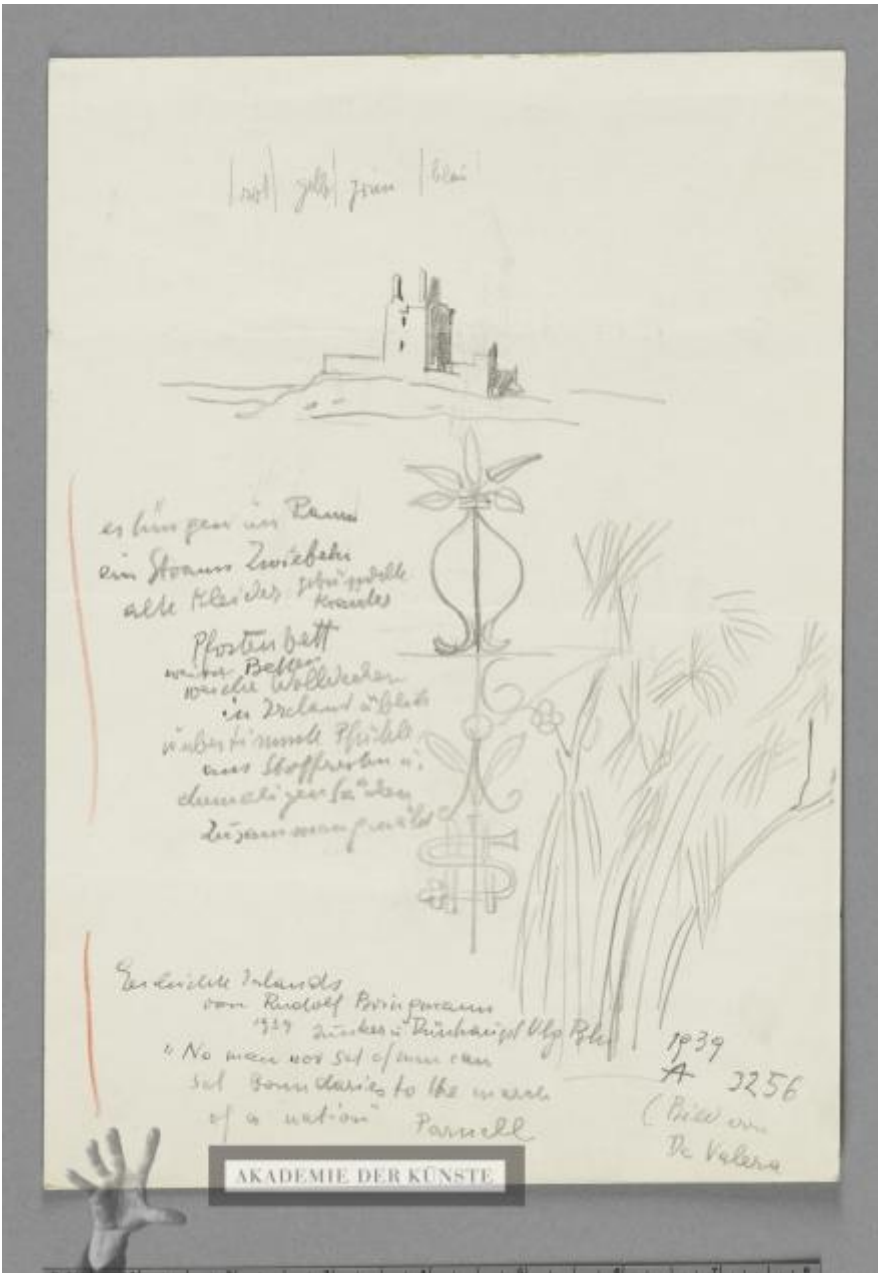 rot gelb grün blau
es hängen im Raum
ein Strauss Zwiebeln
alte Kleider gebündelte
Kräuter
Pfostenbett
Betten
weiche Wolldecken
in Irland üblich
Pfühle
aus Stoffresten u.
ehemaligen
Geschichte Irlands
von Rudolf Bringmann
1939 Junker u Dünnhaupt Vlg Bln
"No man nor set of men can
set boundaries to the march
of a nation"
Parnell
1939
A 3256
(Bild von
De Valera
AKADEMIE DER KÜNSTE